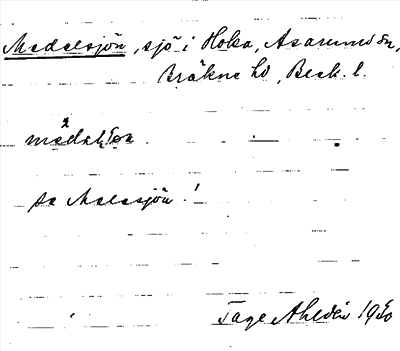 Medelsjön, sjö i Hoka, Asarums sn,
Bräkne hd, Blek. l.
se Mälasjön!
Tage Ahldén 1950